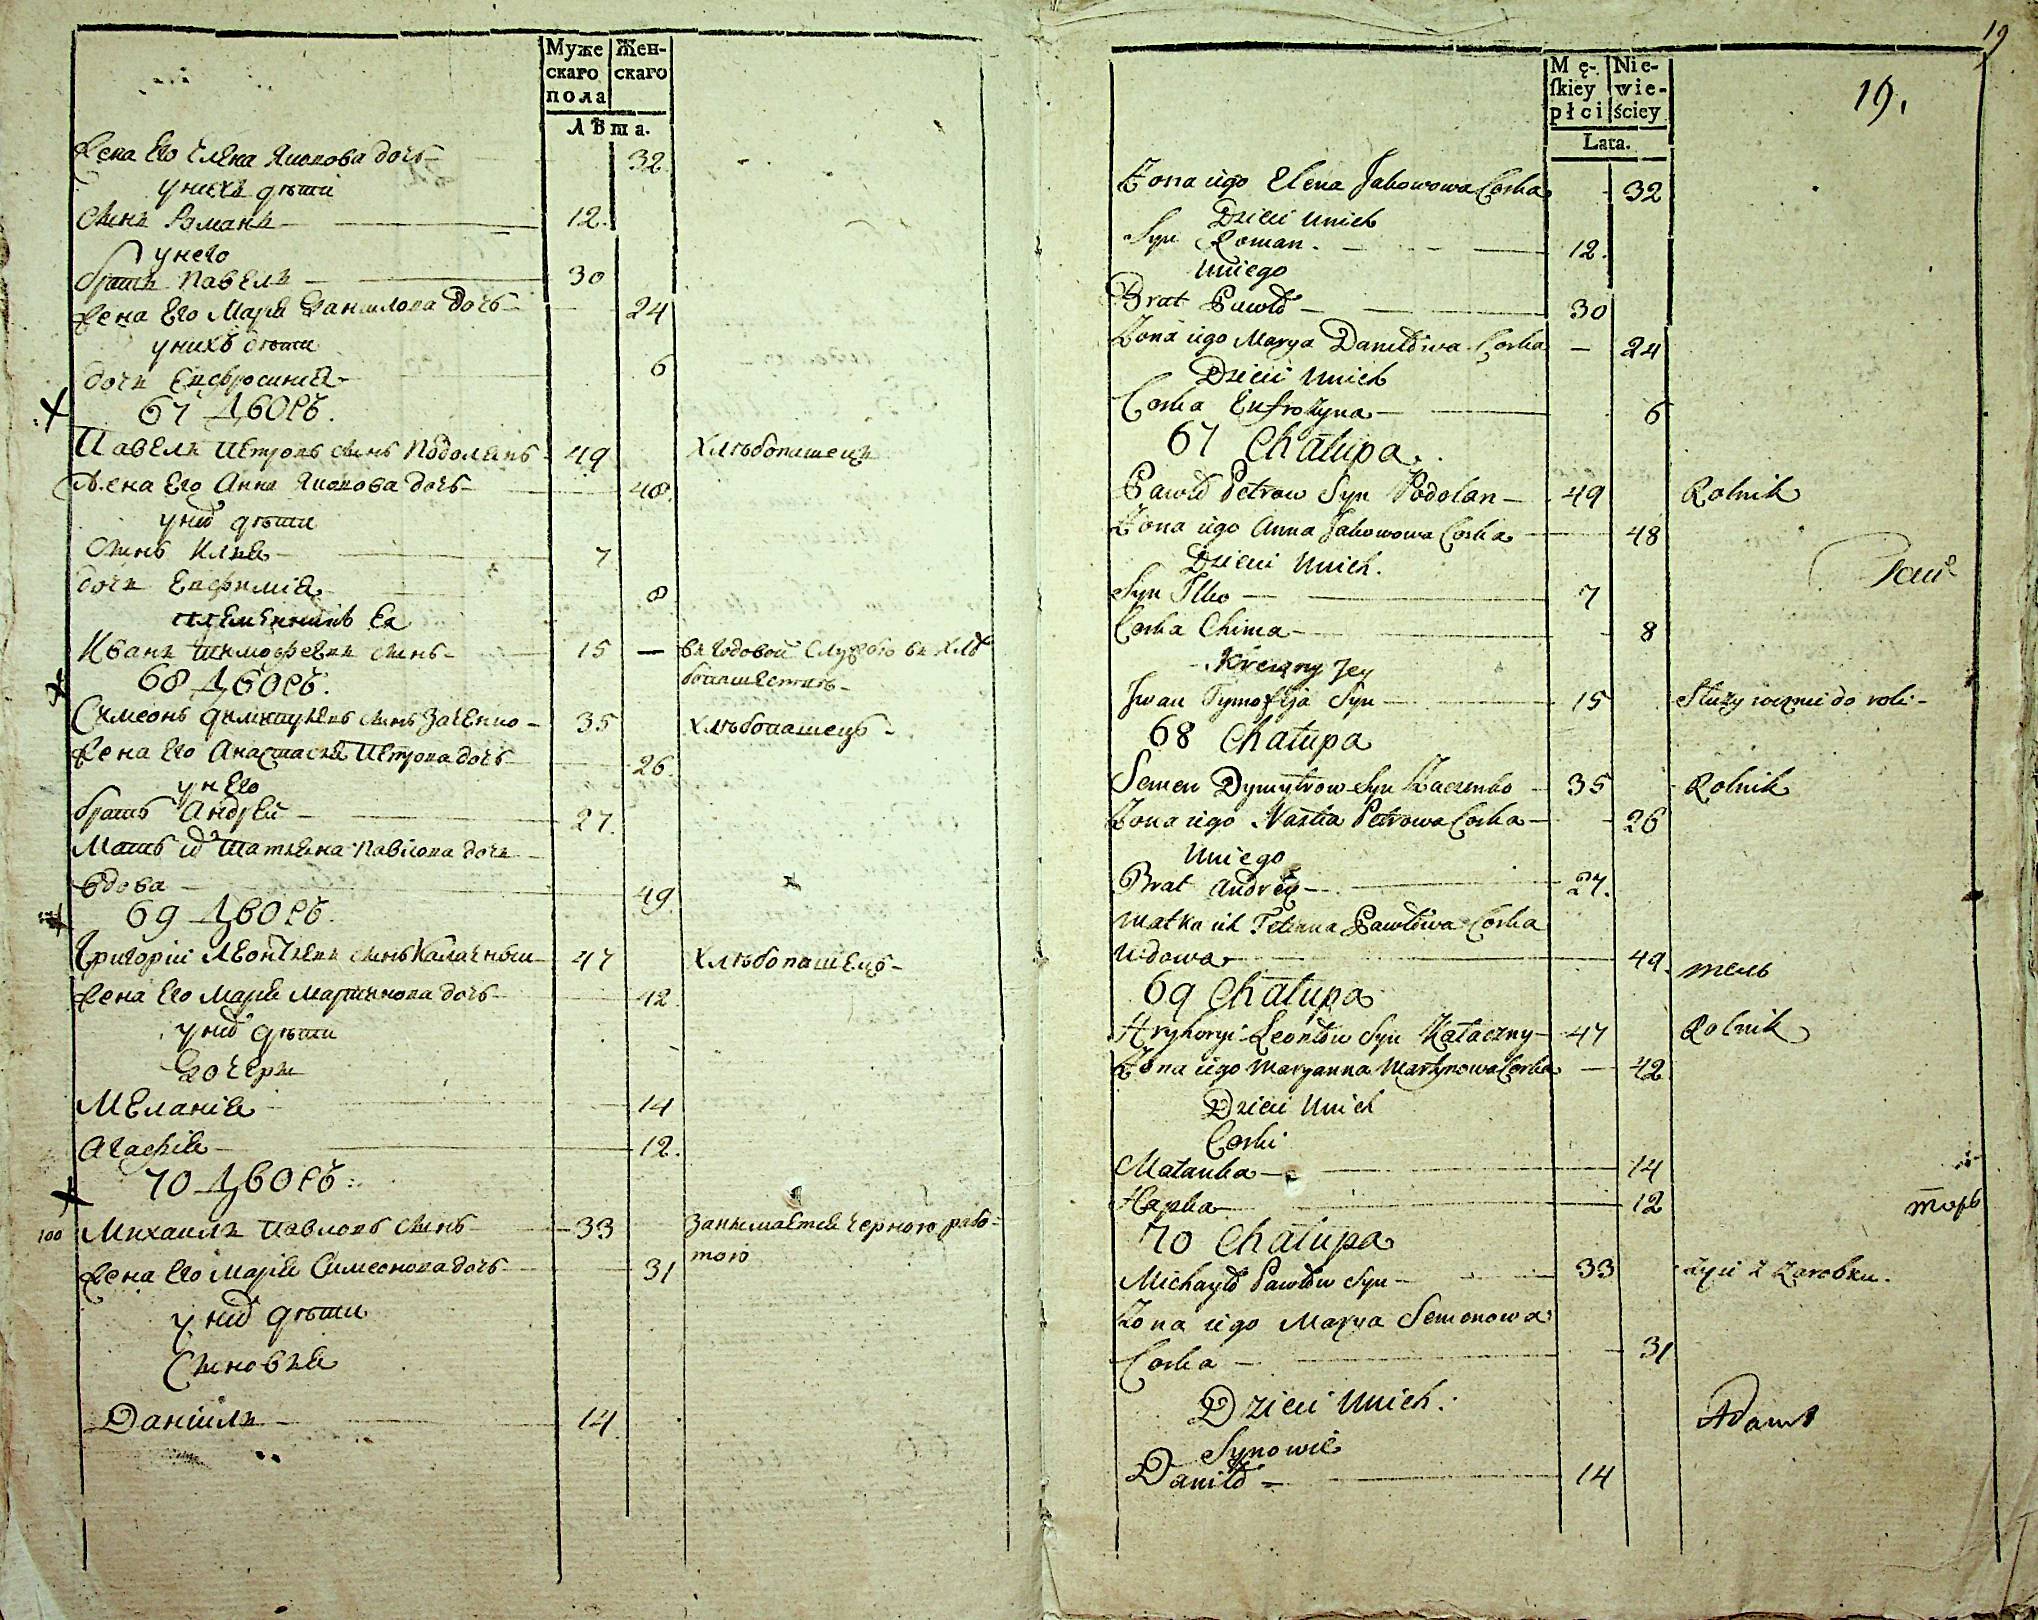 Муже
скаго
пола
Жен-
скаго
Лѣта.
Жена Его Елена Яковова дочь 32
у нихъ дѣти
Сынъ Романъ 12.
у него
братъ Павелъ 30
Жена Его Марія Данилова дочь 24
у нихъ дѣти
дочь Евфросинія 6
67 Дворъ.
Павелъ Петровъ сынъ Подолянъ 49 Хлѣбопашецъ
Жена Его Анна Яковова дочь 48.
у них дѣти
Сынъ Илья 7
дочь Евфимія 8
племенникъ Ея
Иванъ Тимофеевъ сынъ 15 — въ годовой Службѣ въ хлѣ
бопашествѣ
68 Дворъ.
Симеонъ Димитріевъ сынъ Заченко 35 Хлѣбопашецъ
Жена Его Анастасія Петрова дочь 26.
у него
братъ Андрей 27.
Мать их Татіяна Павлова дочь
вдова 49.
69 Дворъ.
Григорій Леонтіевъ сынъ Калачный 47 Хлѣбопашецъ
Жена Его Марія Мартинова дочь 42.
у них дѣти
Дочери
Меланія 14
Агафія 12.
70 Дворъ.
100 Михаилъ Павловъ сынъ 33 Занимается черною рабо=
тою
Жена Его Марія Симеонова дочь 31
у них дѣти
Сыновья
Даніилъ 14.
19
19.
Mę-
ſkiey
płci
Nie-
wie-
ściey
Lata.
Zona iego Elena Jakowowa Corka 32
Dzieci unich
Syn Roman. 12.
uniego
Brat Pawło 30
Zona iego Marya Daniłowa Corka 24
Dzieci unich
Corka Eufrozyna 6
67 Chałupa.
Pawło Petrow Syn Podolan 49 Rolnik
Zona iego Anna Jakowowa Corka 48
Dzieci unich.
Syn Ilko 7
Corka Chima 8
Krewny Jey
Jwan Tymofija Syn 15 Służy rocznie do roli
68 Chałupa
Semen Dymytrow Syn Zaczenko 35 Rolnik
Zona iego Nastia Petrowa Corka 26
uniego
Brat Andrey 27.
Matka ich Tetianna Pawłowa Corka
wdowa 49.
тель
69 Chałupa
Hryhoryi Leontow Syn Kałaczny 47 Rolnik
Zona iego Maryanna Martynowa Corka 42
Dzieci unich
Corki
Małanka 14
Hapka 12
торъ
70 Chałupa
Michayło Pawłow Syn 33 żyie z zarobku.
Zona iego Marya Semenowa
Corka 31
Dzieci unich.
Adamъ
Synowie
Daniło 14